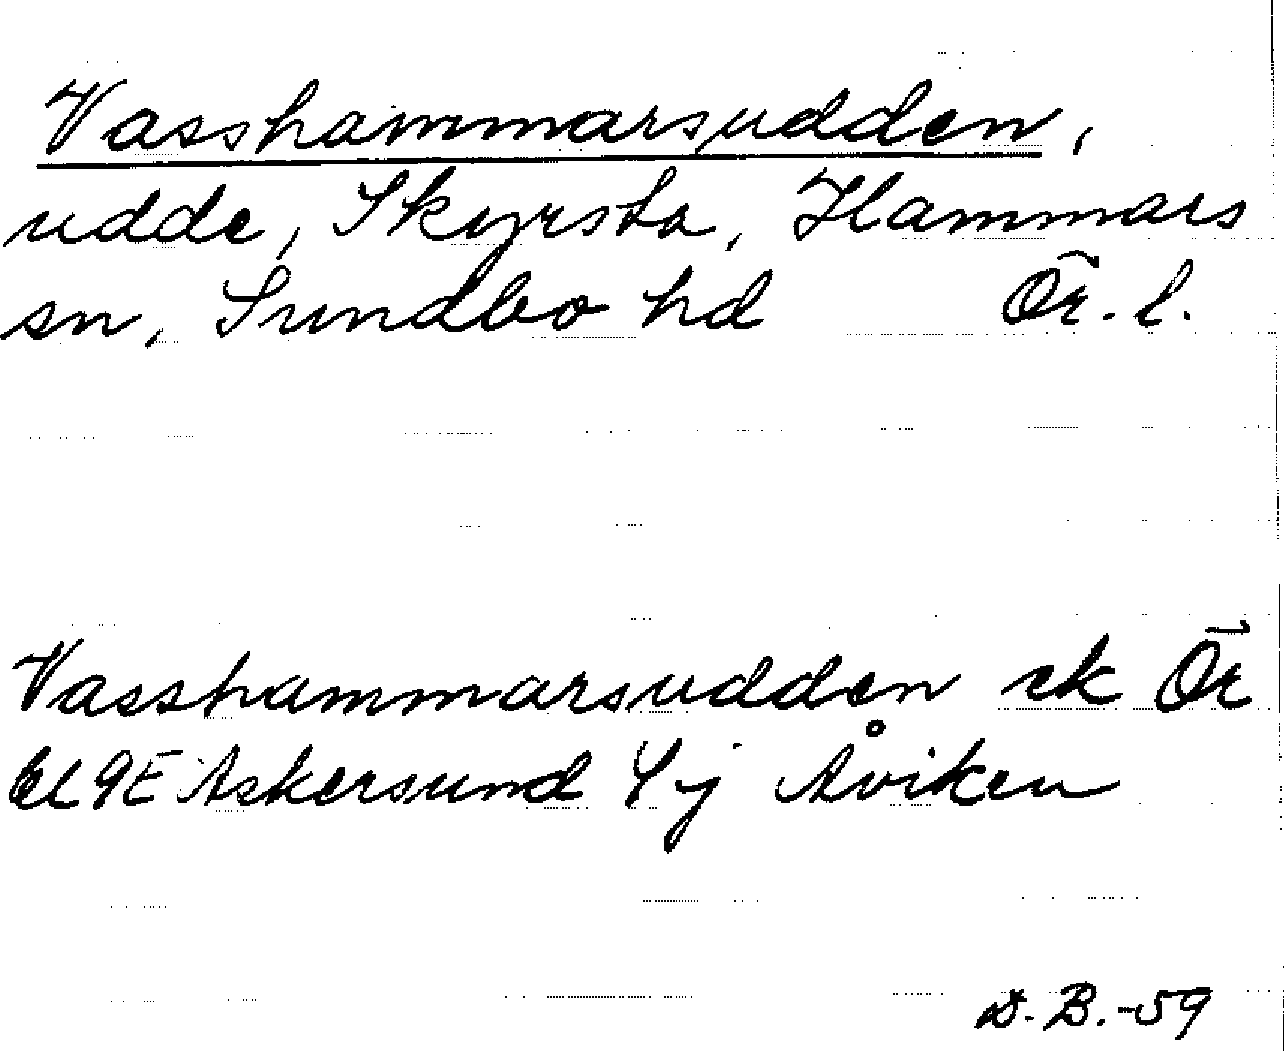 Vasshammarsudden,
udde, Skyrsta, Hammars
sn, Sundbo hd Ör. l.
Vasshammarsudden ek Ör
bl 9E Askersund 4 j Åviken
D. B. -59